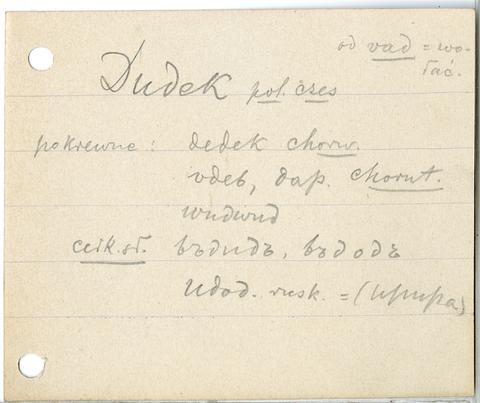 od vad = wo-
łać.
Dudek pol. czes
pokrewne: dedek chorw.
vdeb, dap. chorut.
wudwud
cerk. sł. въдидъ, въдодъ
udod. rusk. = (upupa)